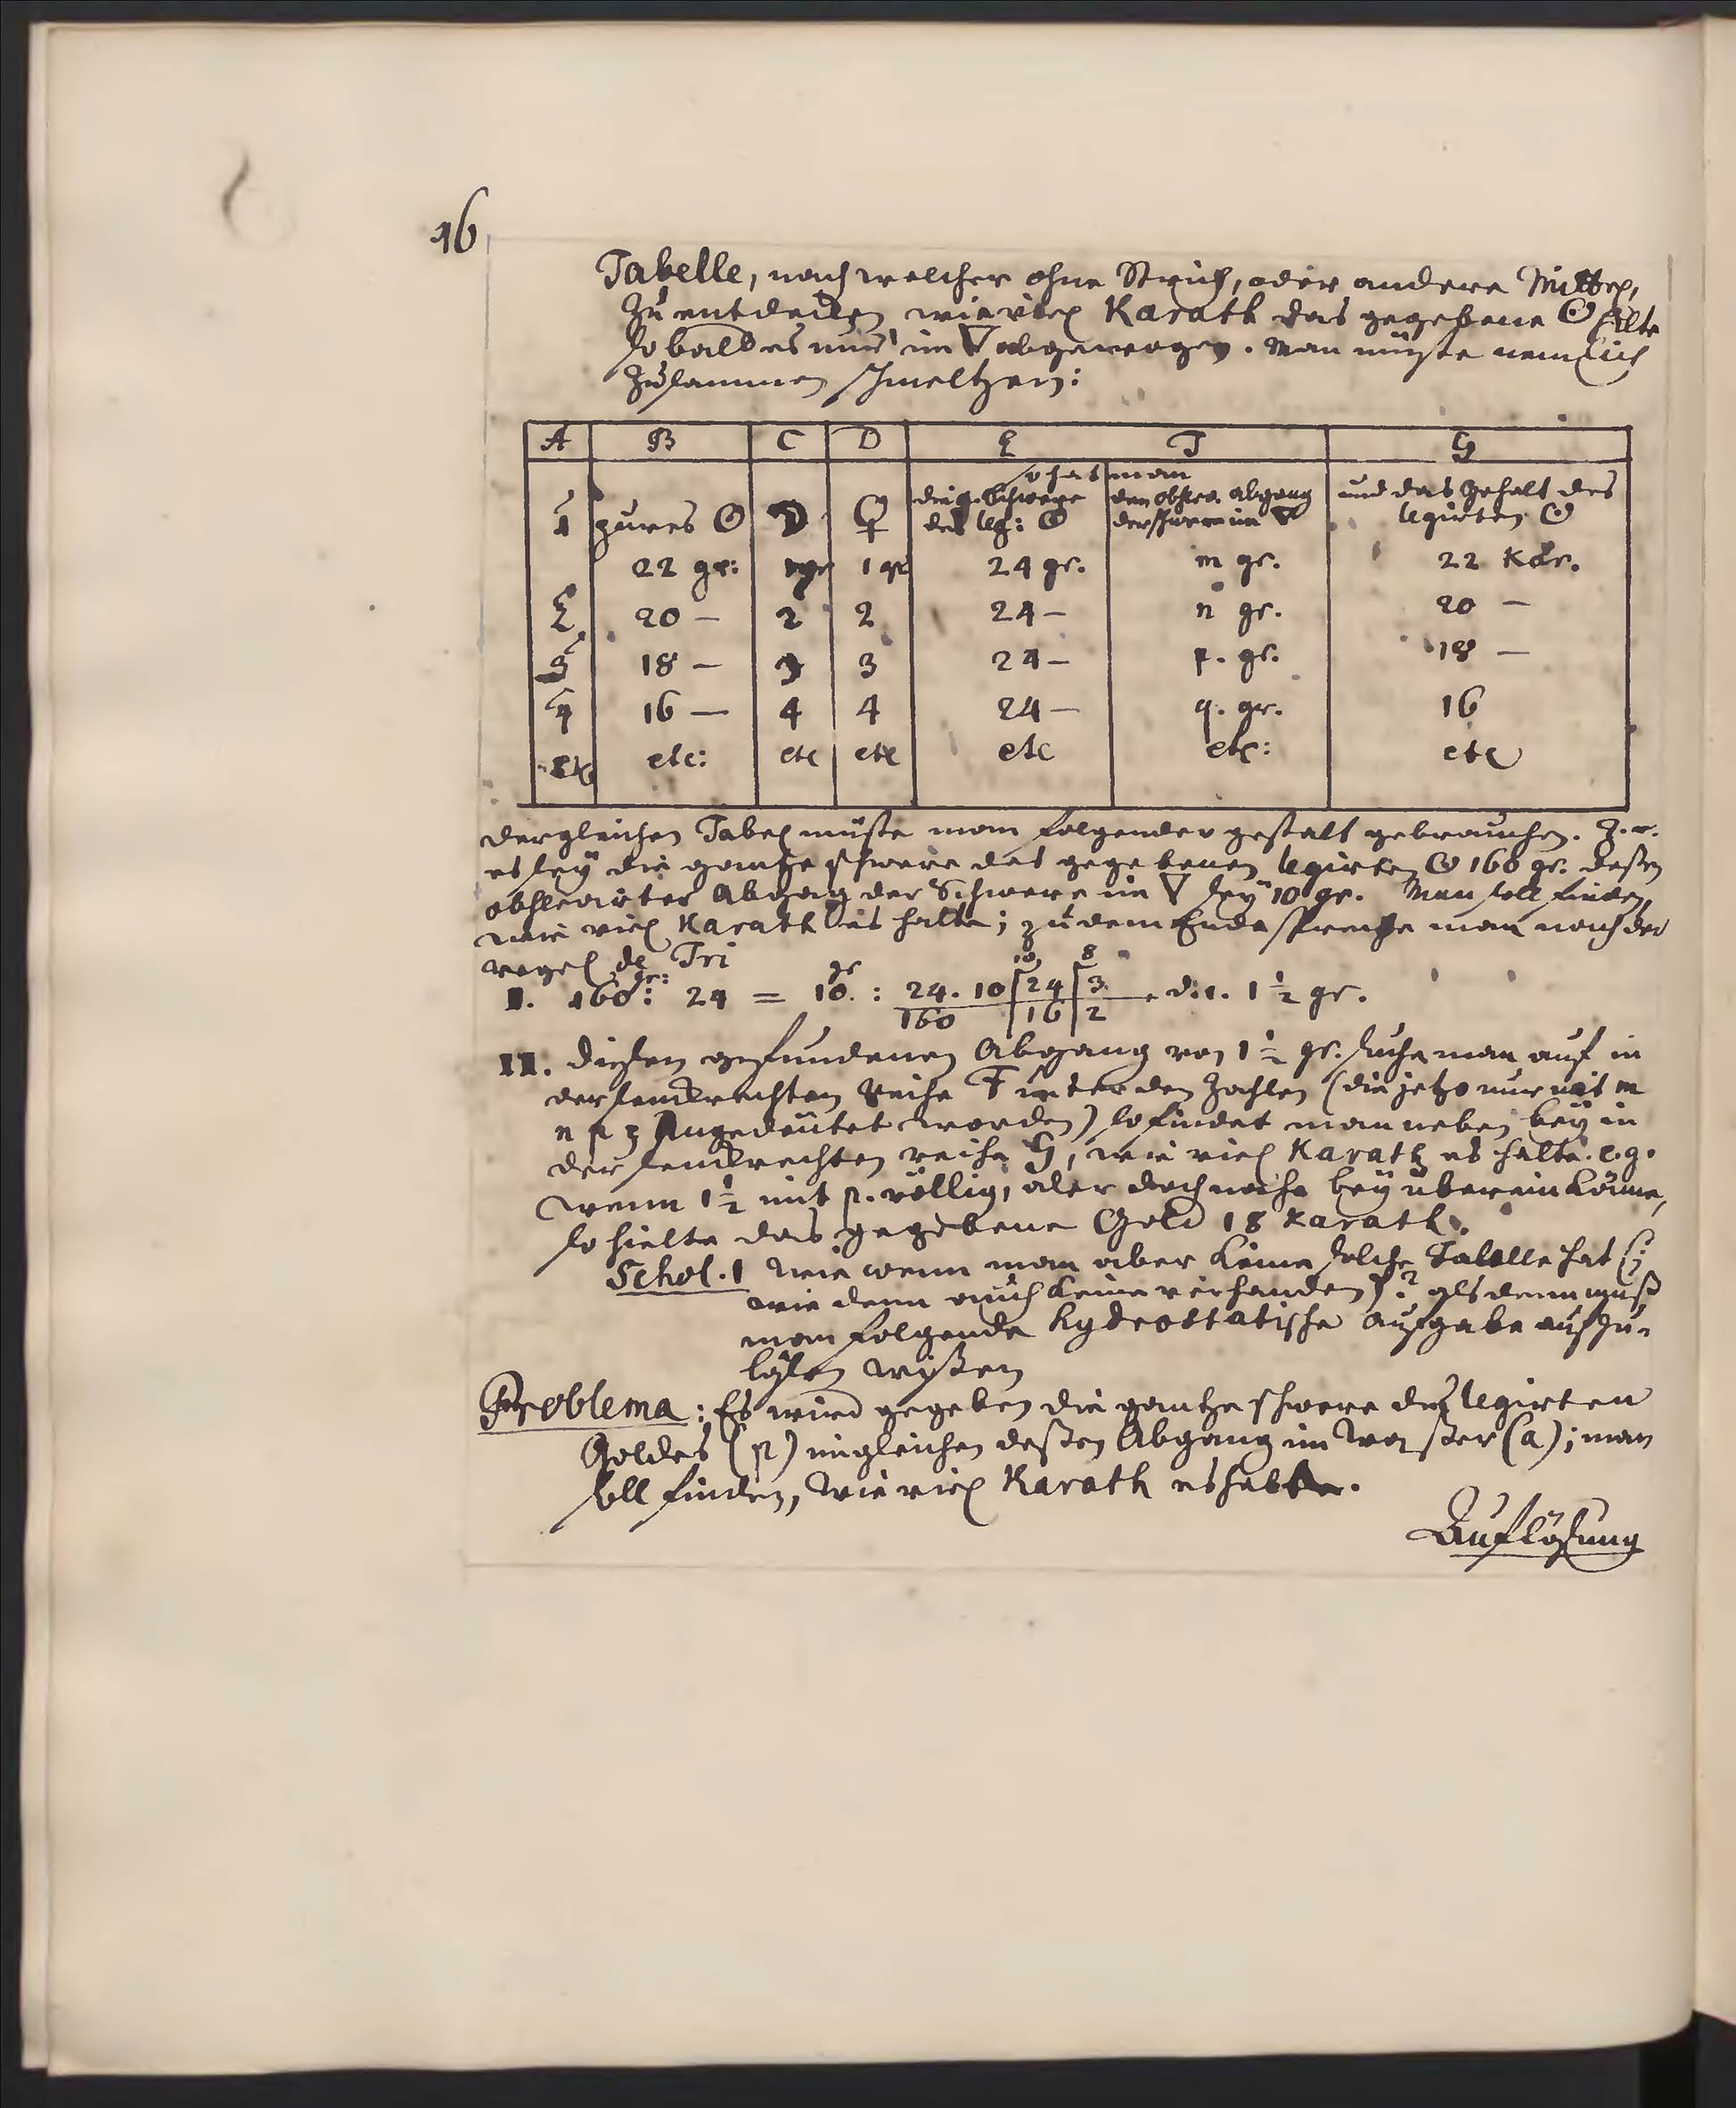 16
Tabelle, nach welcher ohne Strich, oder andere Mittel,
zu entdecken wie viel Karath das gegebene ☉ halte
so bald es nur im ▽ abgewogen. Man müste nemlich
zusammen schmeltzen:
A B C D E F G
so hat man
die g. Schwere den observ. abgang und das Gehalt des
1 pures ☉ ☽ ♀ des leg: ☉ der schwere im ▽ legirten ☉
22 gr: 1 gr 1 gr 24 gr. m gr. 22 Kar.
2 20 — 2 2 24 — n gr. 20 —
3 18 — 3 3 24 — p. gr. 18 —
4 16 — 4 4 24 — q. gr. 16
etc etc: etc etc etc etc: etc
dergleichen Tabel müste man folgender gestalt gebrauchen. Z. e.
es sey die gantze schwere des gegebenen legirten ☉ 160 gr. deßen
observirter Abgang der Schwere im ▽ sey 10 gr. Man soll finden,
wie viel Karath es halte; zu dem Ende spreche man nach der
regel de Tri
gr: gr 10 8
I. 160 : 24 = 10. : 24. 10 | 24 | 3. d. i. 1 1/2 gr.
160 | 16 | 2
II. diesen gefundenen Abgang von 1 1/2 gr. suche man auf in
der senckrechten Reihe F unter den Zahlen (die jetzo nur mit m
n p q angedeutet worden) so findet man neben bey in
der senckrechten reihe G, wie viel Karath es halte. e. g.
wenn 1 1/2 mit p. völlig, oder doch nahe bey überein käme,
so hielte das gegebene Gold 18 Karath.
Schol. 1 Wie wenn man aber keine solche Tabelle hat (:
wie denn auch keine vorhanden)? alsdenn muß
man folgende hydrostatische Aufgabe aufzu-
lösen wißen
Problema: Es wird gegeben die gantze schwere des legirten
Goldes (p) ingleichen deßen Abgang im Waßer (a); man
soll finden, wie viel Karath es halte.
Auflösung